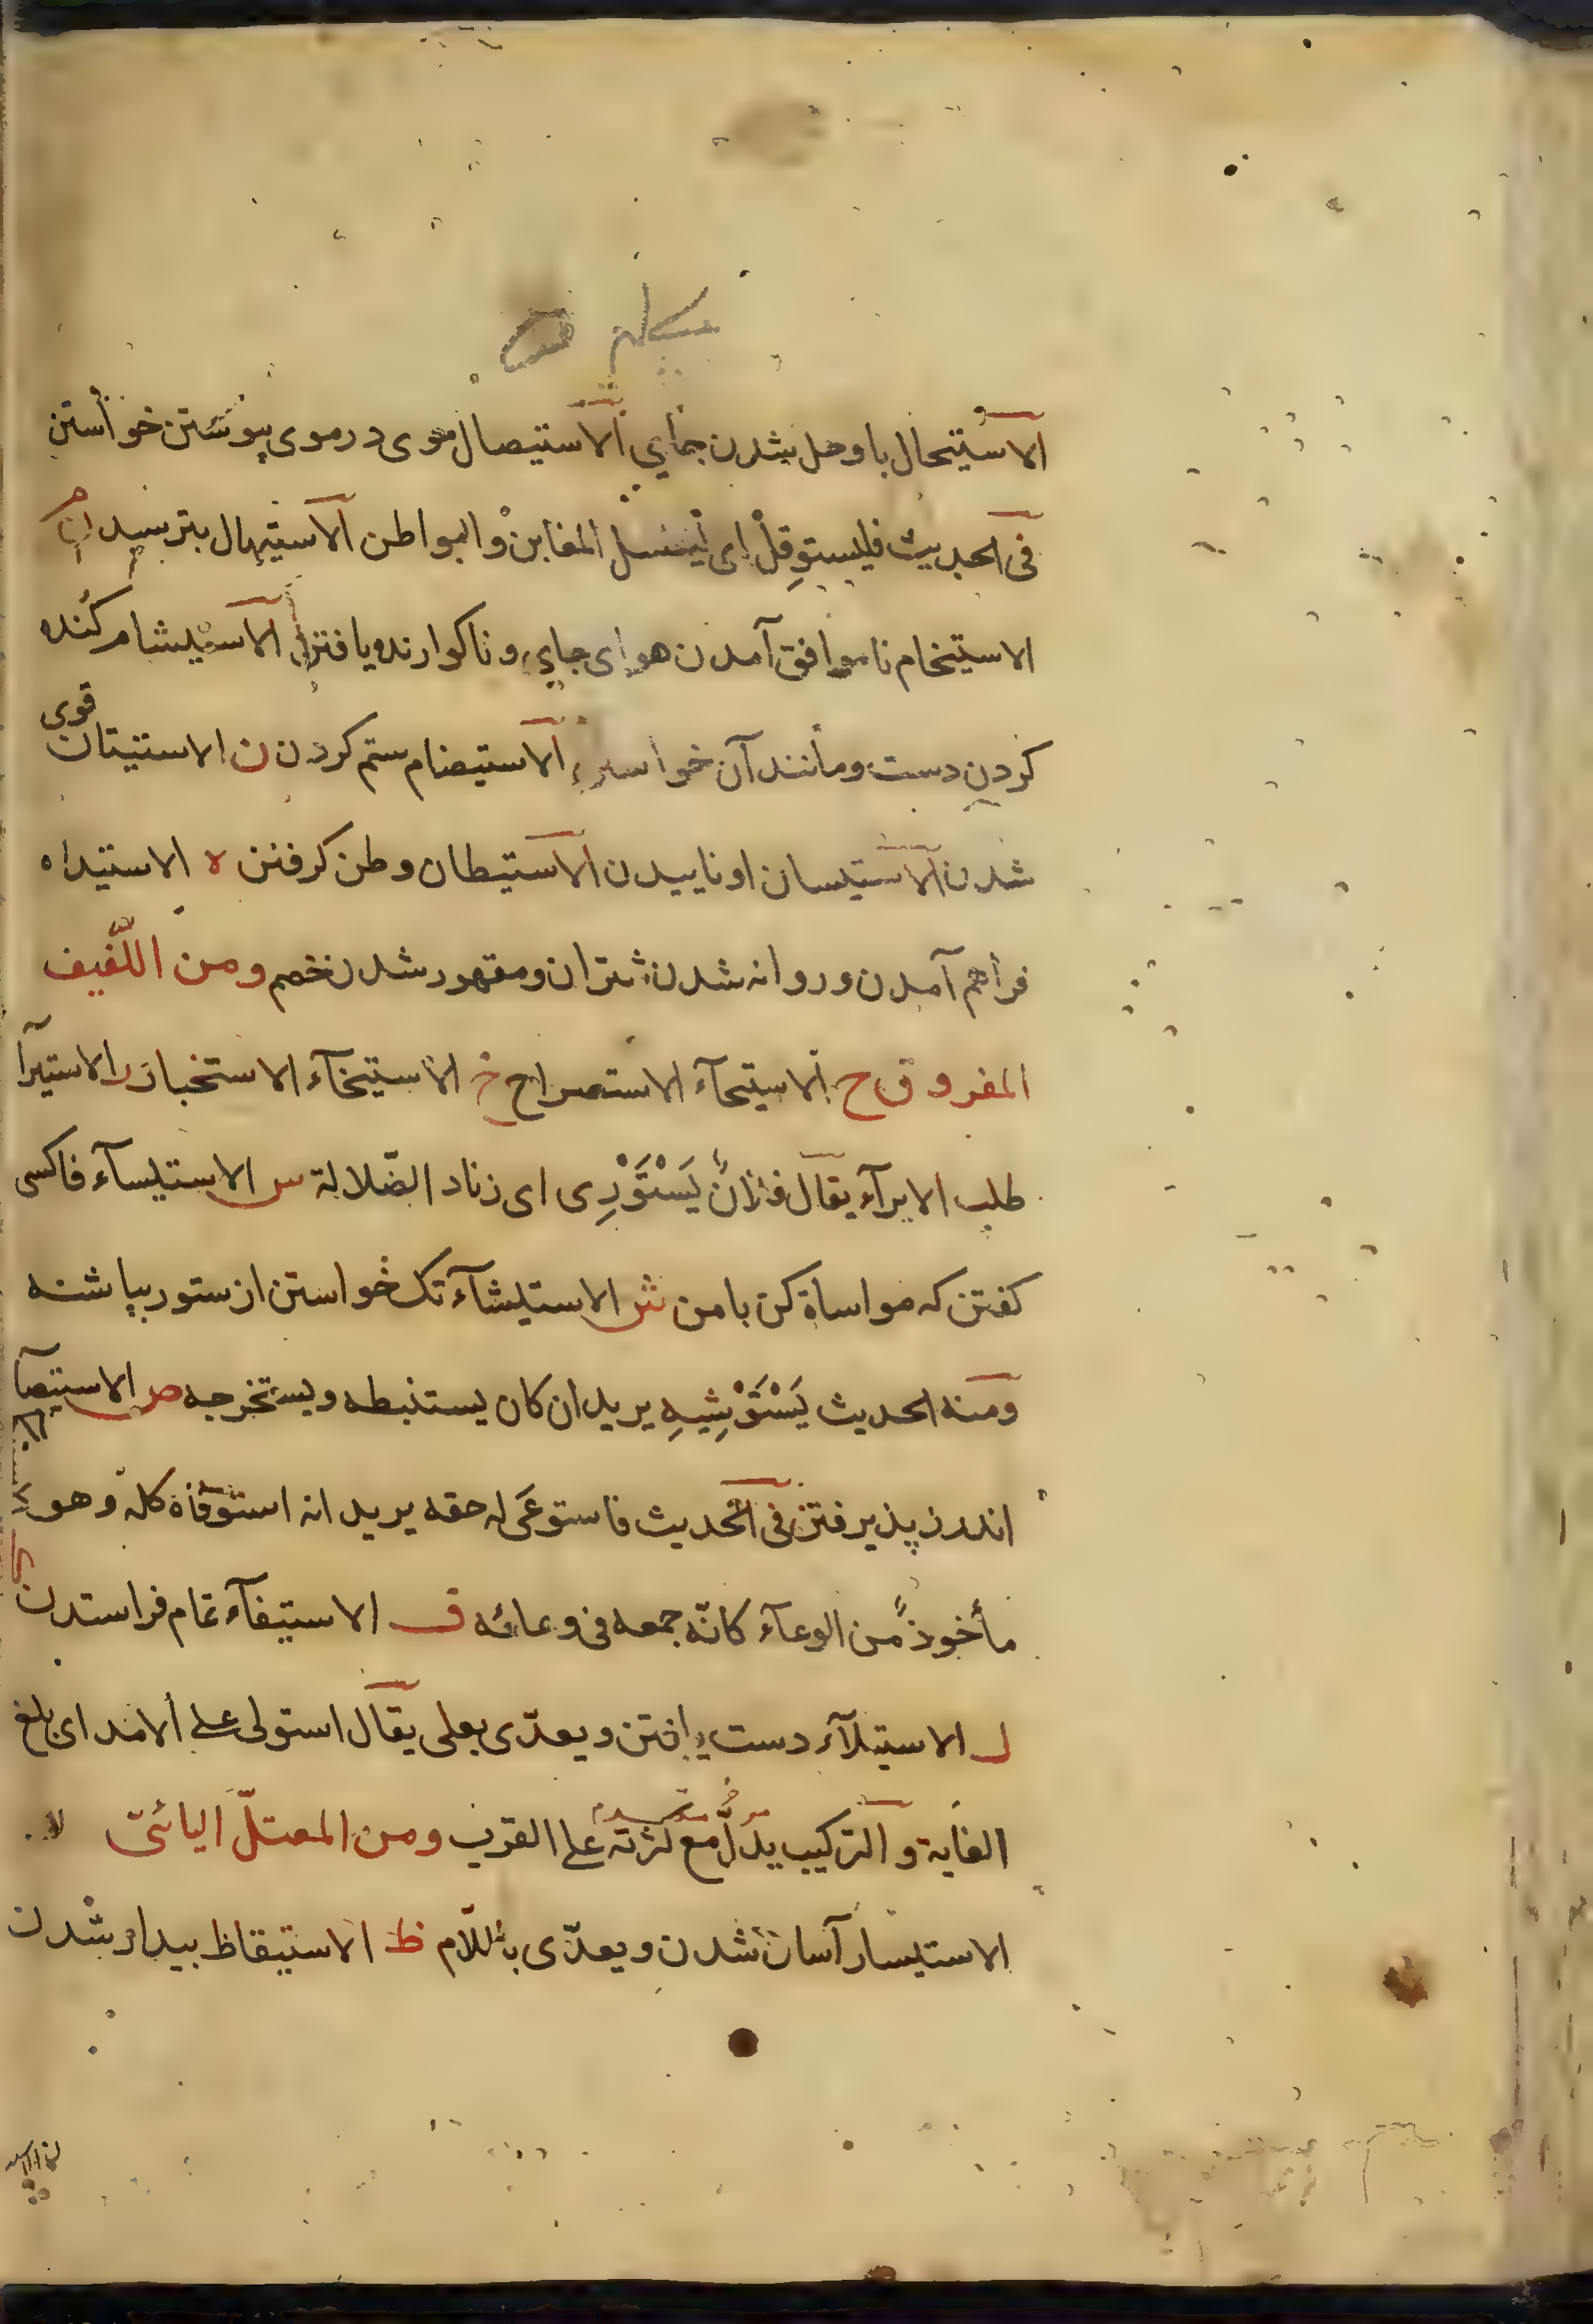 الاستیحال باوحل شدن جای الاستیصال موی در موی پیوستن خواستن
فی الحدیث فلیستوقل ای یغسل المغابن والبواطن الاستیهال بترسیدن م
الاستیخام ناموافق آمدن هوای جای و ناکوارنده یافتن الاستیشام کنده
کردن دست ومانند آن خواستن الاستیضام ستم کردن ن الاستیتان قوی
شدن الاستیسان اوناییدن الاستیطان وطن کرفتن ه الاستیداه
فراهم آمدن و روانه شدن شتران ومقهور شدن خصم ومن اللّفیف
المفروق ح الاستیحآء الاستصراح خ الاستیخآء الاستخبار ر الاستیرآ
طلب الایرآء یقال فلانٌ یَسْتَوْرِی ای زناد الضّلالة س الاستیسآء فاکسی
کفتن که مواساة کن بامن ش الاستیشآء تک خواستن از ستور بپاشنه
ومنه الحدیث یَسْتَوْشِیهِ یرید ان کان یستنبطه ویستخرجه ص الاستیصآ
اندرز پذیرفتن فی الحدیث فاستوعی له حقه یرید انه استوفاه کله وهو
مأخوذ من الوعآء کانّه جمعه فی وعائه ف الاستیفآء تمام فراستدن
ل الاستیلآء دست یافتن ویعدّی بعلی یقال استولی علی الامد ای بلغ
الغایة والترکیب یدلّ مع کثرته علی القرب ومن المعتلّ الیائیّ
الاستیسار آسان شدن ویعدّی باللّام ظ الاستیقاظ بیدار شدن